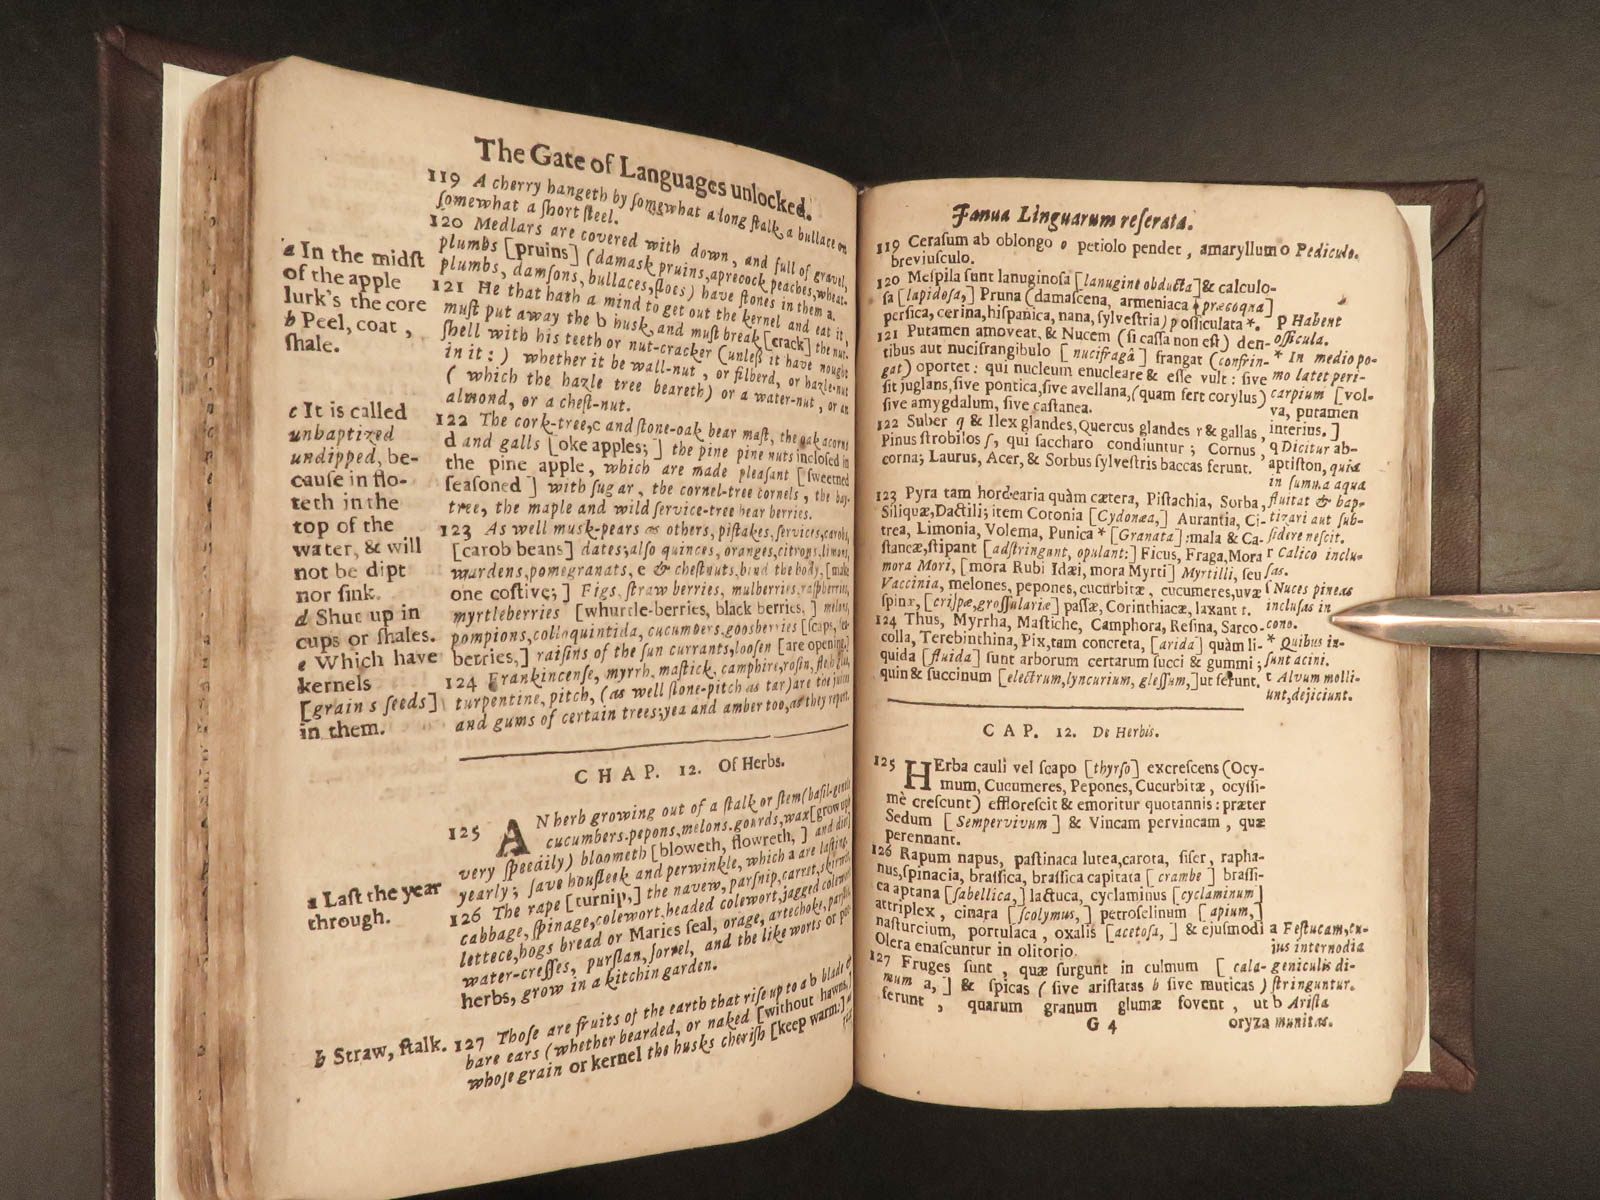 The Gate of Languages unlocked.
119 A cherry hangeth by somewhat a long stalk, a bullace on
somewhat a short steel.
120 Medlars are covered with down, and full of gravel,
plumbs [pruins] (damask pruins, aprecock, peaches, wheat-
plumbs, damsons, bullaces, sloes) have stones in them a.
121 He that hath a mind to get out the kernel and eat it,
must put away the b husk, and must break [crack] the nut-
shell with his teeth or nut-cracker (unless it have nought
in it:) whether it be wall-nut, or filberd, or hazle-nut
(which the hazle tree beareth) or a water-nut, or an
almond, or a chest-nut.
122 The cork-tree, c and stone-oak bear mast, the oak acorns
d and galls [oke apples;] the pine pine nuts inclosed in
the pine apple, which are made pleasant [sweetned
seasoned] with sugar, the cornel-tree cornels, the bay-
tree, the maple and wild service-tree bear berries.
123 As well musk-pears as others, pistakes, services, carobs,
[carob beans] dates; also quinces, oranges, citrons, limons,
wardens, pomegranats, e & chestnuts, bind the body, [make
one costive;] Figs, straw berries, mulberries, raspberries,
myrtleberries [whurtle-berries, black berries,] melons,
pompions, colloquintida, cucumbers, goosberries [
berries,] raisins of the sun currants, loosen [are opening.]
124 Frankincense, myrrh, mastick, camphire, rosin,
turpentine, pitch, (as well stone-pitch as tar) are the juices
and gums of certain trees; yea and amber too, as they report.
a In the midst
of the apple
lurk's the core
b Peel, coat,
shale.
c It is called
unbaptized
undipped, be-
cause in flo-
teth in the
top of the
water, & will
not be dipt
nor sink.
d Shut up in
cups or shales.
e Which have
kernels
[grain s seeds]
in them.
CHAP. 12. Of Herbs.
125 AN herb growing out of a stalk or stem (basil-gentle
cucumbers, pepons, melons, gourds, wax [grow up
very speedily) bloometh [bloweth, flowreth,] and diei
yearly; save housleek and perwinkle, which a are lasting.
126 The rape [turnip,] the navew, parsnip, carret, skirret,
cabbage, spinage, colewort, headed colewort, jagged colewort
lettece, hogs bread or Maries seal, orage, artechoke,
water-cresses, purslan, sorrel, and the like worts or pot-
herbs, grow in a kitchin garden.
127 Those are fruits of the earth that rise up to a b blade &
bare ears (whether bearded, or naked [without hawns,)
whose grain or kernel the husks cherish [keep warm:] as
a Last the year
through.
b Straw, stalk.
Janua Linguarum reserata.
119 Cerasum ab oblongo o petiolo pendet, amaryllum
breviusculo.
120 Mespila sunt lanuginosa [lanugine obducta] & calculo-
sa [lapidosa,] Pruna (damascena, armeniaca præcoqna]
persica, cerina, hispanica, nana, sylvestria) p ossiculata *.
121 Putamen amoveat, & Nucem (si cassa non est) den-
tibus aut nucifrangibulo [nucifragâ] frangat (confrin-
gat) oportet: qui nucleum enucleare & esse vult: sive
sit juglans, sive pontica, sive avellana, (quam fert corylus)
sive amygdalum, sive castanea.
122 Suber q & Ilex glandes, Quercus glandes r & gallas,
Pinus strobilos s, qui saccharo condiuntur; Cornus,
corna; Laurus, Acer, & Sorbus sylvestris baccas ferunt.
123 Pyra tam hordearia quàm cætera, Pistachia, Sorba,
Siliquæ, Dactili; item Cotonia [Cydonæa,] Aurantia, Ci-
trea, Limonia, Volema, Punica * [Granata]: mala & Ca-
stancæ, stipant [adstringunt, opulant:] Ficus, Fraga, Mora
mora Mori, [mora Rubi Idæi, mora Myrti] Myrtilli, seu
Vaccinia, melones, pepones, cucurbitæ, cucumeres, uvæ
spinæ, [crispæ, grossulariæ] passæ, Corinthiacæ, laxant t.
124 Thus, Myrrha, Mastiche, Camphora, Resina, Sarco-
colla, Terebinchina, Pix, tam concreta, [arida] quàm li-
quida [fluida] sunt arborum certarum succi & gummi;
quin & succinum [electrum, lyncurium, glessum,] ut ferunt.
o Pediculo.
p Habent
ossicula.
* In medio po-
mo latet peri-
carpium [vol-
va, putamen
interius.]
q Dicitur ab-
aptiston, quia
in summa aqua
fluitat & bap-
tizari aut sub-
sidere nescit.
r Calico inclu-
sas.
s Nuces pineas
inclusas in
cono.
* Quibus in-
sunt acini.
t Alvum molli-
unt, dejiciunt.
CAP. 12. De Herbis.
125 HErba cauli vel scapo [thyrso] excrescens (Ocy-
mum, Cucumeres, Pepones, Cucurbitæ, ocyssi-
mè crescunt) efflorescit & emoritur quotannis: præter
Sedum [Sempervivum] & Vincam pervincam, quæ
perennant.
126 Rapum napus, pastinaca lutea, carota, siser, rapha-
nus, spinacia, brassica, brassica capitata [crambe] brassi-
ca aptana [sabellica,] lactuca, cyclaminus [cyclaminum]
attriplex, cinara [scolymus,] petroselinum [apium,]
nasturcium, portulaca, oxalis [acetosa,] & ejusmodi
Olera enascuntur in olitorio.
127 Fruges sunt, quæ surgunt in culmum [cala-
mum a,] & spicas (sive aristatas b sive muticas)
ferunt, quarum granum glumæ fovent, ut
G 4 oryza
a Festucam, cu-
jus internodia
geniculis di-
stringuntur.
b Arista
munitas.